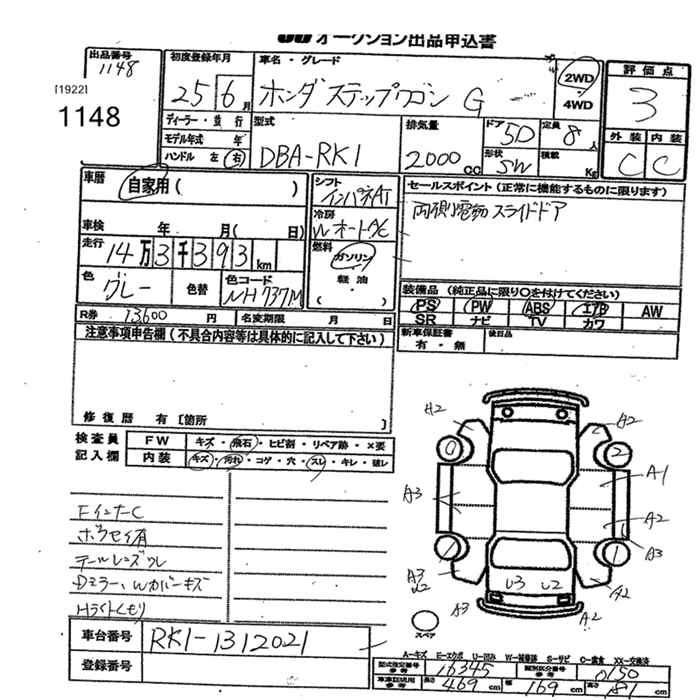 オークション出品申込書
出品番号
1148
[1922]
1148
初度登録年月
25 6月
車名・グレード
ホンダ ステップワゴン G
2WD
4WD
評価点
3
外装 内装
C C
ディーラー・並行
モデル年式 年
ハンドル 左 右
型式
DBA-RK1
排気量
2000cc
ドア
5D
形状
SW
定員
8人
積載
Kg
車歴
自家用( )
車検 年 月( 日)
走行
14万3千393km
色
グレー
色替
色コード
NH737M
シフト
インパネAT
冷房
WオートAC
燃料
ガソリン
軽油
( )
セールスポイント(正常に機能するものに限ります)
両側電動スライドドア
装備品(純正品に限り○を付けてください)
PS PW ABS エアB AW
SR ナビ TV カワ
新車保証書
有・無
後日品
R券 13600円
名変期限 月 日
注意事項申告欄(不具合内容等は具体的に記入して下さい)
修復歴 有[箇所 ]
検査員
記入欄
FW キズ・飛石・ヒビ割・リペア跡・×要
内装 キズ・汚れ・コゲ・穴・スレ・キレ・破レ
FインナーC
ボウセイ有
テールレンズワレ
Dミラー、Wカバーキズ
Hライトくもり
A2
A2
A1
A3
A2
A3
A3
U2
U3 U2
A2
A3
A2
スペア
車台番号
RK1-1312021
登録番号
A=キズ E=エクボ U=凹み W=補修跡 S=サビ C=腐食 XX=交換済
型式指定番号
参考
16345
類別区分番号
参考
0150
車車証記用
参考
長さ 469cm
幅 169cm
高さ 181cm